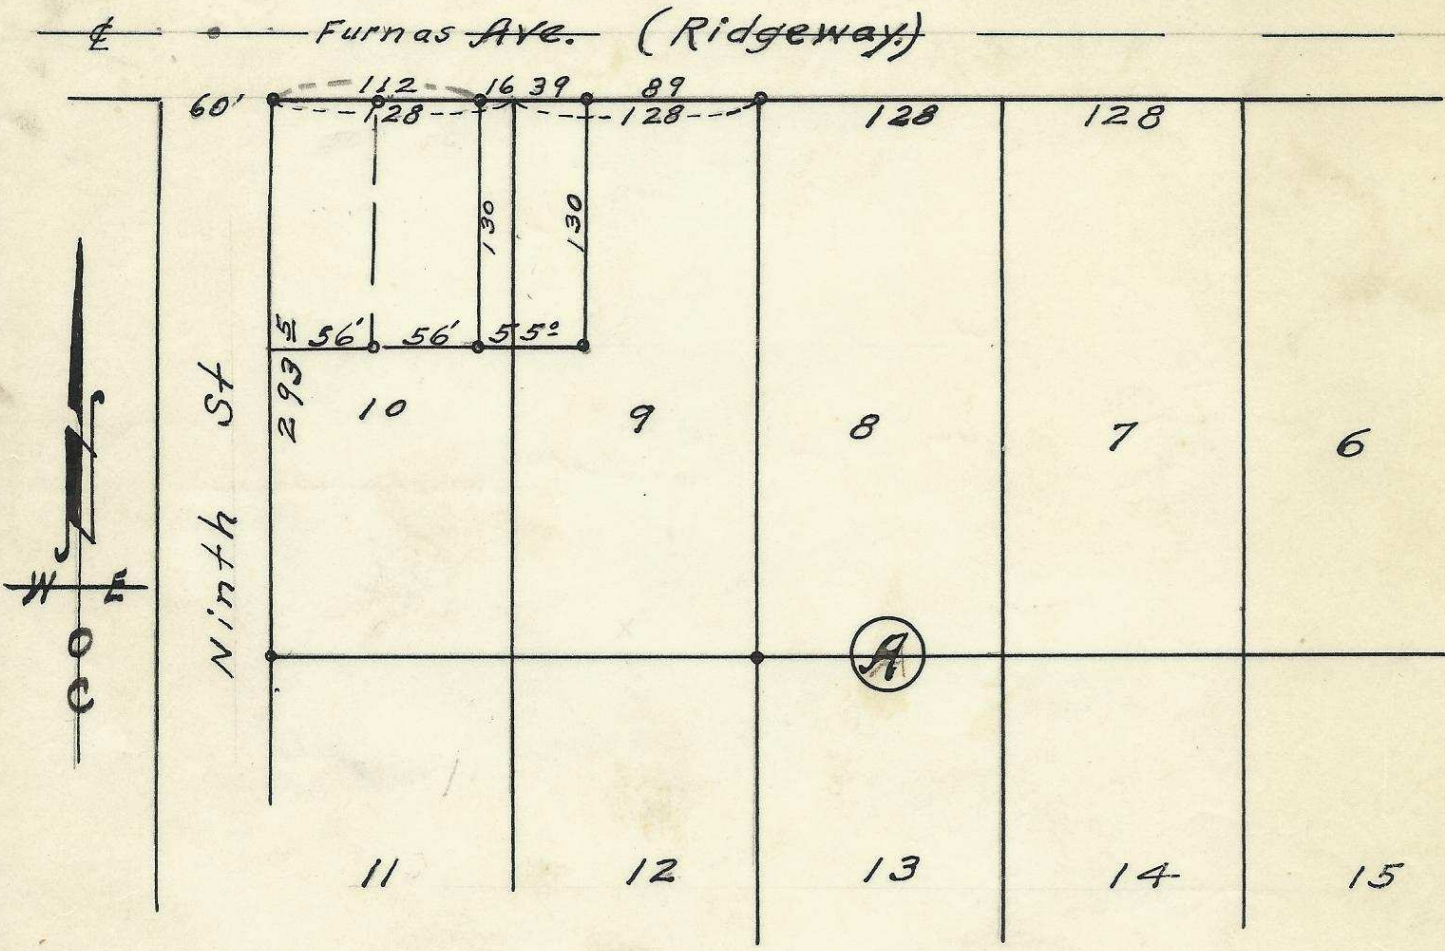 ℄ Furnas Ave. (Ridgeway.)
60' 112 16 39 89
128 128 128 128
130 130
293 5
56' 56' 55º
Ninth St
10 9 8 7 6
W E
O
C
A
11 12 13 14 15